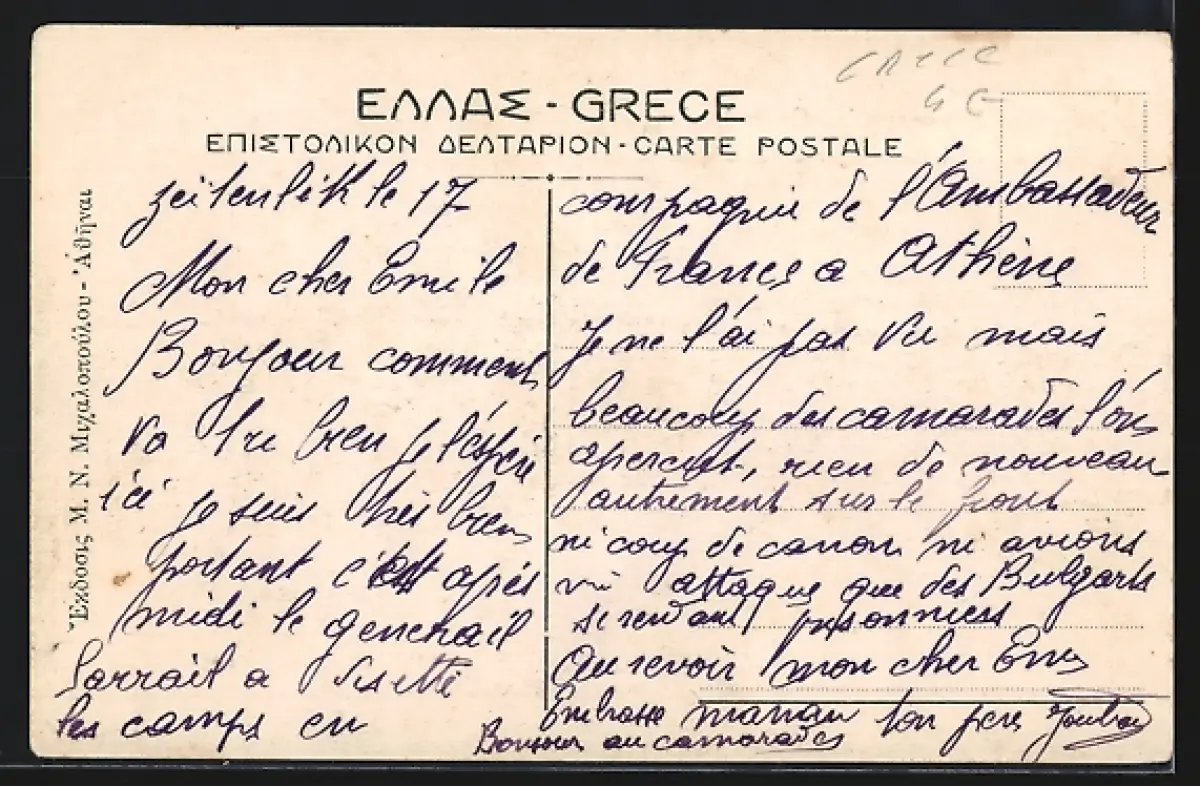 ΕΛΛΑΣ - GRECE
ΕΠΙΣΤΟΛΙΚΟΝ ΔΕΛΤΑΡΙΟΝ - CARTE POSTALE
Ἔκδοσις Μ. Ν. Μιχαλοπούλου - Ἀθῆναι
Zeitenlik le 17
Mon cher Emile
Bonjour comment
va tu bien je l'espère
ici je suis très bien
portant c'est après
midi le generail
Sarrail a visetté
les camps en
compagnie de l'Ambassadeur
de France a Athène
Je ne l'ai pas vu mais
beaucoup des camarades l'ons
apercut, rien de nouveau
autrement sur le front
ni coup de canon ni avions
ni attaque que des Bulgars
se rendant prisonniers
Au revoir mon cher
Embrasse maman ton père
Bonjour au camarades